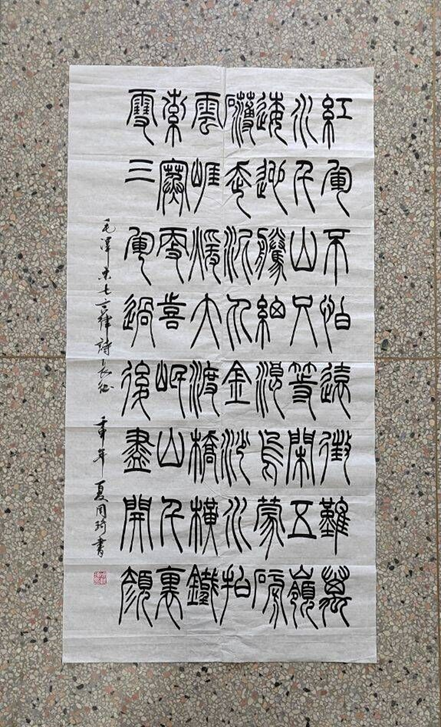 紅軍不怕遠徵難萬
水千山只等閑五嶺
逶迤騰細浪烏蒙磅
礴走泥丸金沙水拍
雲崖暖大渡橋橫鐵
索寒更喜岷山千裏
雪三軍過後盡開顏
毛澤東七言律詩長征 壬申年 夏周琦書